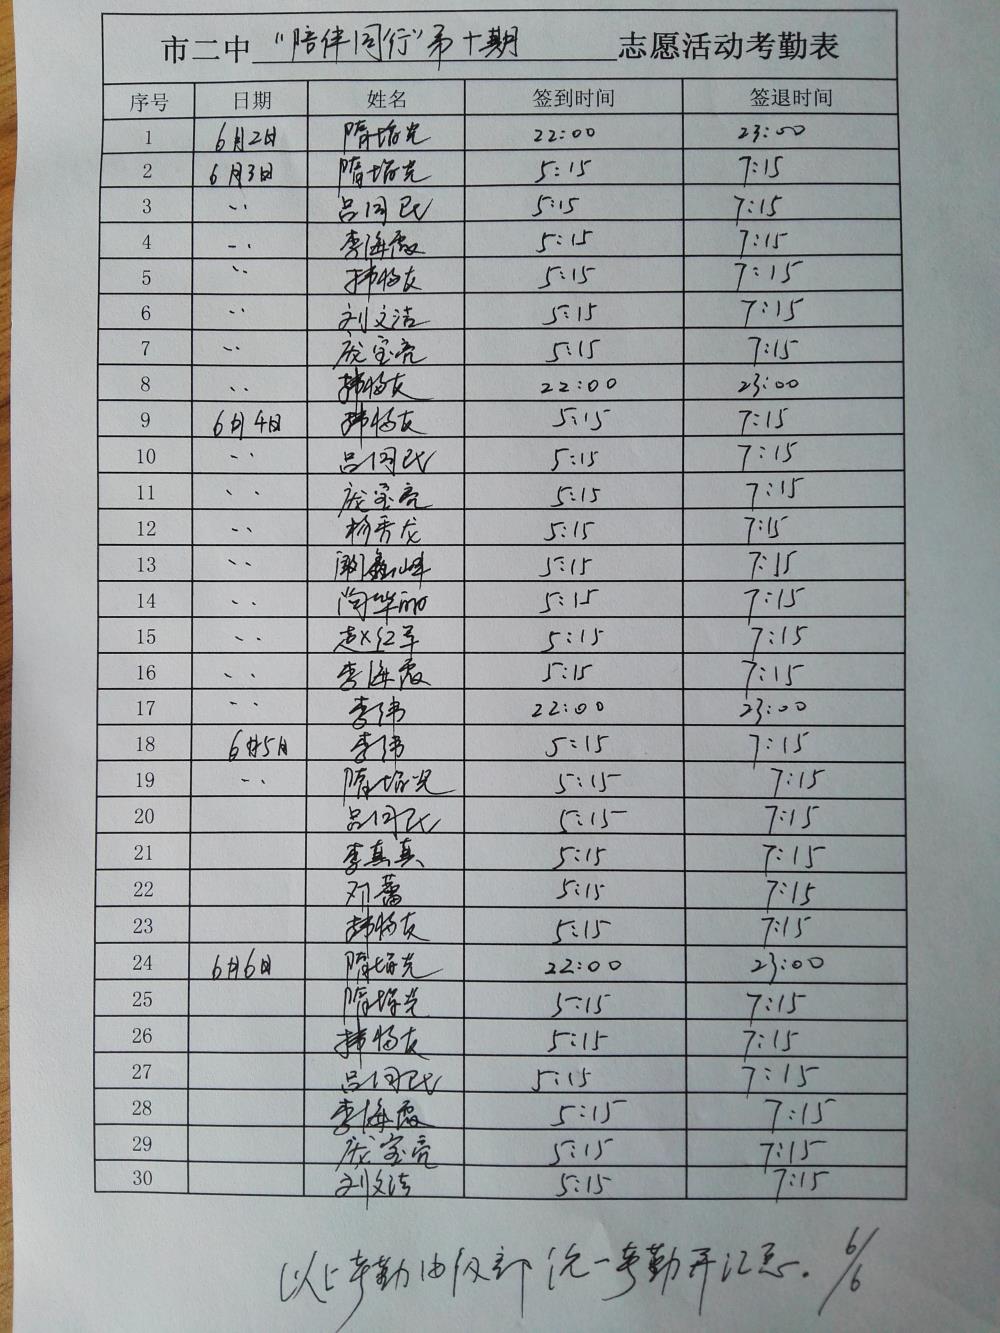 市二中 "陪伴同行"第十期 志愿活动考勤表
序号 日期 姓名 签到时间 签退时间
1 6月2日 隋培光 22:00 23:00
2 6月3日 隋培光 5:15 7:15
3 、、 吕同民 5:15 7:15
4 、、 李海霞 5:15 7:15
5 、、 5:15 7:15
6 、、 刘文洁 5:15 7:15
7 、、 庞宝亮 5:15 7:15
8 、、 22:00 23:00
9 6月4日 5:15 7:15
10 、、 吕同民 5:15 7:15
11 、、 庞宝亮 5:15 7:15
12 、、 杨秀龙 5:15 7:15
13 、、 5:15 7:15
14 、、 5:15 7:15
15 、、 赵红军 5:15 7:15
16 、、 李海霞 5:15 7:15
17 、、 李伟 22:00 23:00
18 6月5日 李伟 5:15 7:15
19 、、 隋培光 5:15 7:15
20 吕同民 5:15 7:15
21 李真真 5:15 7:15
22 邓蕾 5:15 7:15
23 5:15 7:15
24 6月6日 隋培光 22:00 23:00
25 隋培光 5:15 7:15
26 5:15 7:15
27 吕同民 5:15 7:15
28 李海霞 5:15 7:15
29 庞宝亮 5:15 7:15
30 刘文洁 5:15 7:15
以上考勤由级部统一考勤并汇总. 6/6